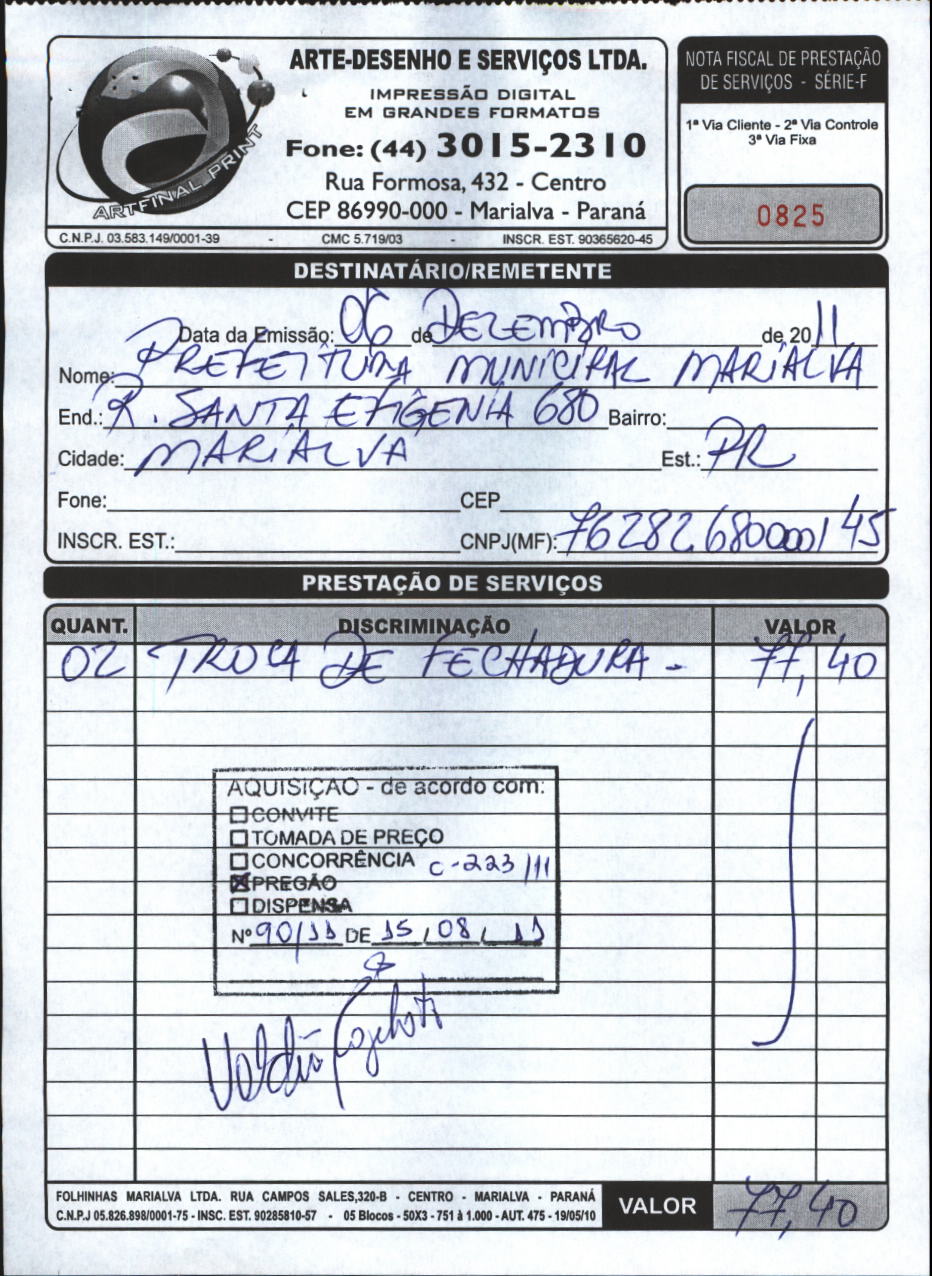 ARTFINAL PRINT
ARTE-DESENHO E SERVIÇOS LTDA.
IMPRESSÃO DIGITAL
EM GRANDES FORMATOS
Fone: (44) 3015-2310
Rua Formosa, 432 - Centro
CEP 86990-000 - Marialva - Paraná
C.N.P.J. 03.583.149/0001-39 - CMC 5.719/03 - INSCR. EST. 90365620-45
NOTA FISCAL DE PRESTAÇÃO
DE SERVIÇOS - SÉRIE-F
1ª Via Cliente - 2ª Via Controle
3ª Via Fixa
0825
DESTINATÁRIO/REMETENTE
Data da Emissão: 06 de DEZEMBRO de 20 11
Nome: PREFEITURA MUNICIPAL MARIALVA
End.: R. SANTA EFIGENIA 680 Bairro:
Cidade: MARIALVA Est.: PR
Fone: CEP
INSCR. EST.: CNPJ(MF): 76282680000145
PRESTAÇÃO DE SERVIÇOS
QUANT. DISCRIMINAÇÃO VALOR
02 TROCA DE FECHADURA - 77,40
AQUISIÇÃO - de acordo com:
CONVITE
TOMADA DE PREÇO
CONCORRÊNCIA C-223/11
PREGÃO
DISPENSA
Nº 90/11 DE 15/08/11
FOLHINHAS MARIALVA LTDA. RUA CAMPOS SALES,320-B - CENTRO - MARIALVA - PARANÁ
C.N.P.J 05.826.898/0001-75 - INSC. EST. 90285810-57 - 05 Blocos - 50X3 - 751 à 1.000 - AUT. 475 - 19/05/10
VALOR 77,40